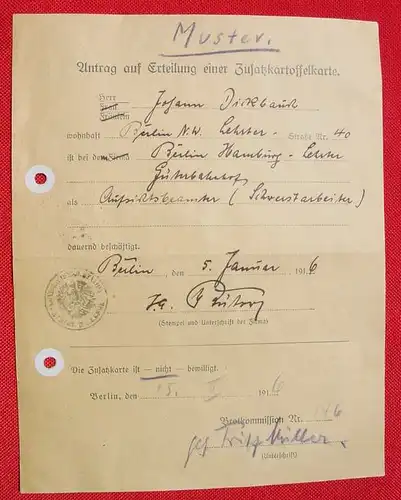 Muster.
Antrag auf Erteilung einer Zusatzkartoffelkarte.
Herr
Frau
Fräulein
Johann
wohnhaft Berlin N.W. Lehrter- Straße Nr. 40
ist bei dem Firma Berlin Hamburg-Lehrter
Güterbahnhof
als Aufsichtsbeamter (Schwerstarbeiter)
dauernd beschäftigt.
Berlin, den 5. Januar 1916
(Stempel und Unterschrift der Firma)
Die Zusatzkarte ist — nicht — bewilligt.
Berlin, den 15. 1916
Brotkommission Nr. 146
gez Fritz Müller.
(Unterschrift)